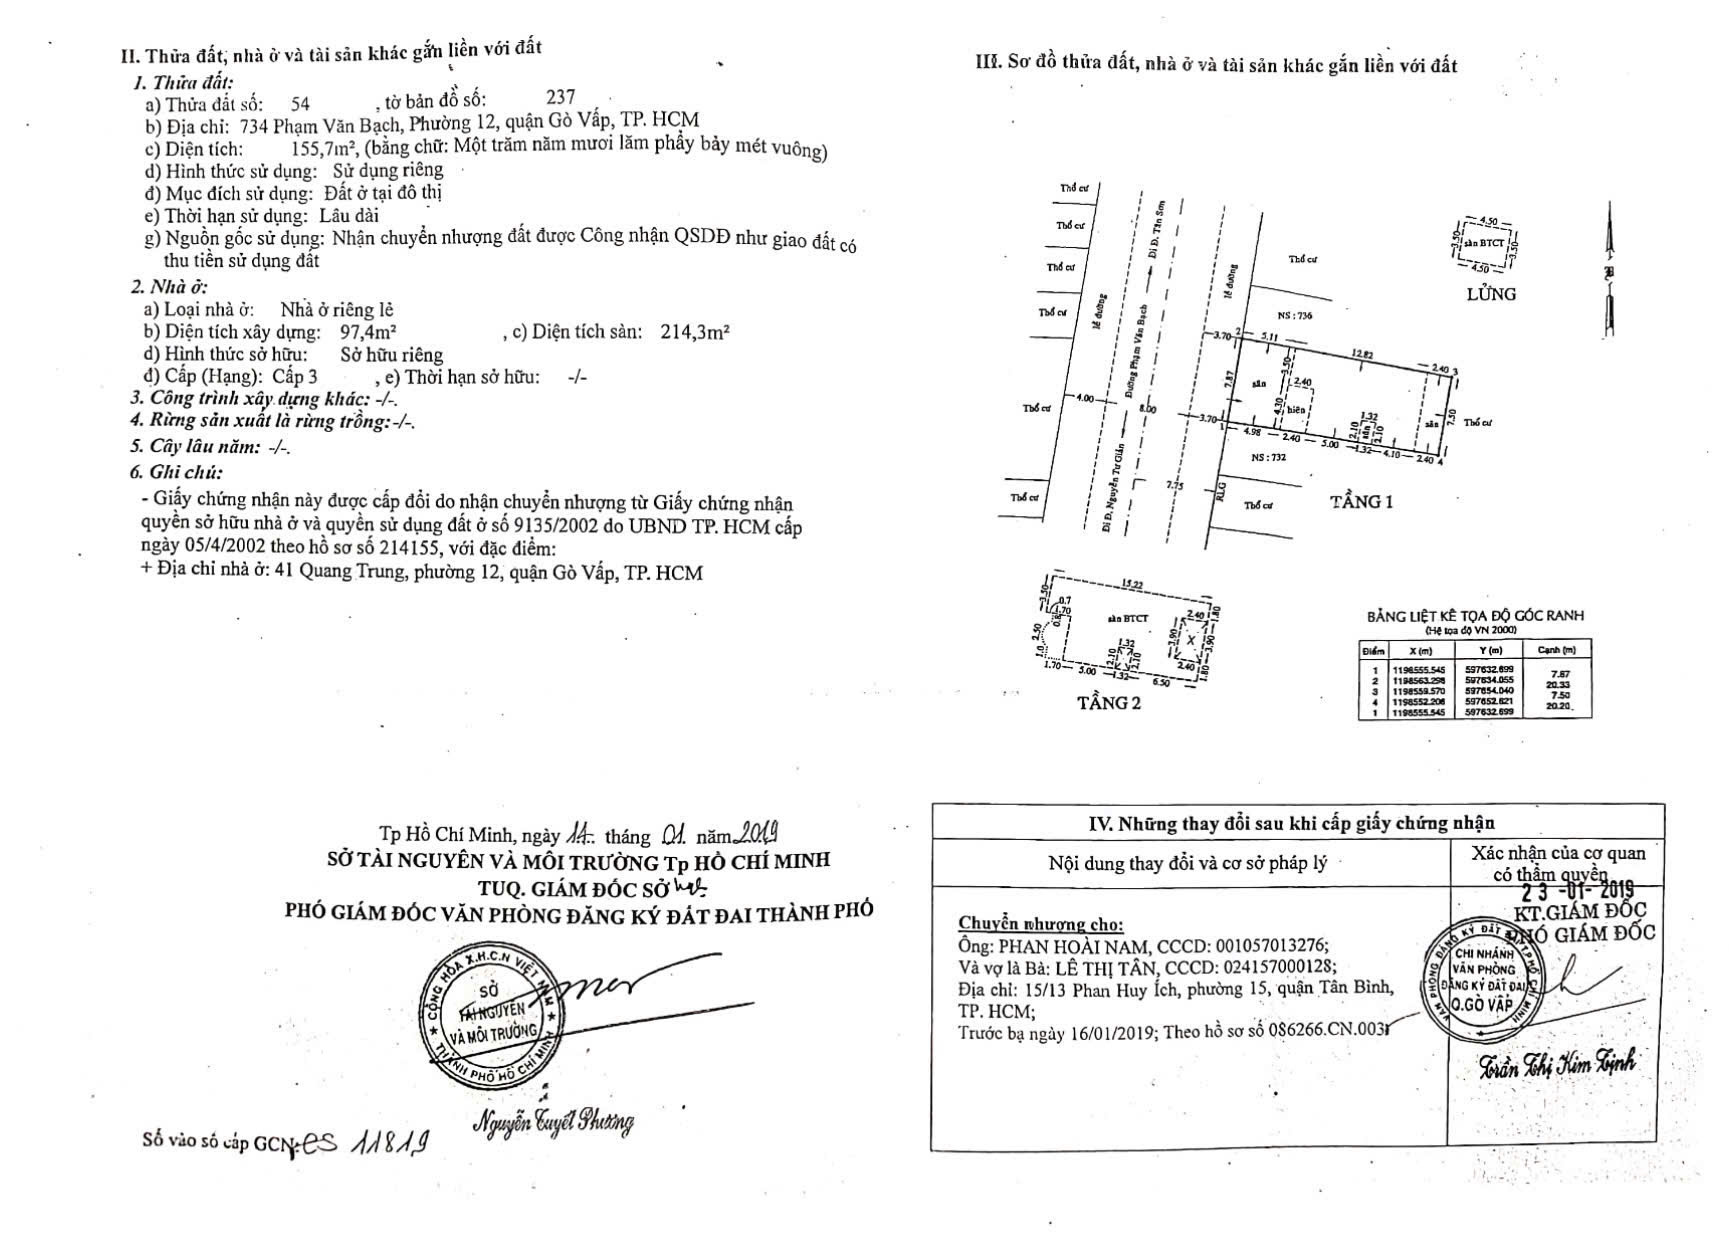 II. Thửa đất, nhà ở và tài sản khác gắn liền với đất
1. Thửa đất:
a) Thửa đất số: 54 , tờ bản đồ số: 237
b) Địa chỉ: 734 Phạm Văn Bạch, Phường 12, quận Gò Vấp, TP. HCM
c) Diện tích: 155,7m², (bằng chữ: Một trăm năm mươi lăm phẩy bảy mét vuông)
d) Hình thức sử dụng: Sử dụng riêng
đ) Mục đích sử dụng: Đất ở tại đô thị
e) Thời hạn sử dụng: Lâu dài
g) Nguồn gốc sử dụng: Nhận chuyển nhượng đất được Công nhận QSDĐ như giao đất có
thu tiền sử dụng đất
2. Nhà ở:
a) Loại nhà ở: Nhà ở riêng lẻ
b) Diện tích xây dựng: 97,4m² , c) Diện tích sàn: 214,3m²
d) Hình thức sở hữu: Sở hữu riêng
đ) Cấp (Hạng): Cấp 3 , e) Thời hạn sở hữu: -/-
3. Công trình xây dựng khác: -/-.
4. Rừng sản xuất là rừng trồng:-/-.
5. Cây lâu năm: -/-.
6. Ghi chú:
- Giấy chứng nhận này được cấp đổi do nhận chuyển nhượng từ Giấy chứng nhận
quyền sở hữu nhà ở và quyền sử dụng đất ở số 9135/2002 do UBND TP. HCM cấp
ngày 05/4/2002 theo hồ sơ số 214155, với đặc điểm:
+ Địa chỉ nhà ở: 41 Quang Trung, phường 12, quận Gò Vấp, TP. HCM
Tp Hồ Chí Minh, ngày 14 tháng 01 năm 2019
SỞ TÀI NGUYÊN VÀ MÔI TRƯỜNG Tp HỒ CHÍ MINH
TUQ. GIÁM ĐỐC SỞ
PHÓ GIÁM ĐỐC VĂN PHÒNG ĐĂNG KÝ ĐẤT ĐAI THÀNH PHỐ
CỘNG HÒA X.H.C.N VIỆT NAM
SỞ
TÀI NGUYÊN
VÀ MÔI TRƯỜNG
THÀNH PHỐ HỒ CHÍ MINH
Nguyễn Tuyết Phương
Số vào sổ cấp GCN: CS 11819
III. Sơ đồ thửa đất, nhà ở và tài sản khác gắn liền với đất
Thổ cư
Thổ cư
Thổ cư
Thổ cư
Thổ cư
Thổ cư
lề đường
Đi Đ. Tân Sơn
Đường Phạm Văn Bạch
Đi Đ. Nguyễn Tư Giản
lề đường
4.00
8.00
7.75
RLG
Thổ cư
NS : 736
3.70
2
5.11
12.82
2.40
3
7.87
sân
3.50
2.40
hiên
4.30
1.32
2.10
sân
2.10
sân
7.50
Thổ cư
3.70
1
4.98
2.40
5.00
1.32
4.10
2.40
4
NS : 732
Thổ cư
TẦNG 1
4.50
3.50
sàn BTCT
3.50
4.50
LỬNG
B
15.22
3.50
0.7
1.70
0.8
sàn BTCT
2.40
1.80
2.50
1.32
3.90
X
3.90
1.0
2.10
2.10
2.40
1.80
1.70
5.00
1.32
6.50
TẦNG 2
BẢNG LIỆT KÊ TỌA ĐỘ GÓC RANH
(Hệ tọa độ VN 2000)
Điểm X (m) Y (m) Cạnh (m)
1 1198555.545 597632.699
7.87
2 1198563.298 597634.055
20.33
3 1198559.570 597654.040
7.50
4 1198552.206 597652.621
20.20
1 1198555.545 597632.699
IV. Những thay đổi sau khi cấp giấy chứng nhận
Nội dung thay đổi và cơ sở pháp lý
Xác nhận của cơ quan
có thẩm quyền
Chuyển nhượng cho:
Ông: PHAN HOÀI NAM, CCCD: 001057013276;
Và vợ là Bà: LÊ THỊ TÂN, CCCD: 024157000128;
Địa chỉ: 15/13 Phan Huy Ích, phường 15, quận Tân Bình,
TP. HCM;
Trước bạ ngày 16/01/2019; Theo hồ sơ số 086266.CN.003
23-01-2019
KT.GIÁM ĐỐC
PHÓ GIÁM ĐỐC
VĂN PHÒNG ĐĂNG KÝ ĐẤT ĐAI T.PHỐ HỒ CHÍ MINH
CHI NHÁNH
VĂN PHÒNG
ĐĂNG KÝ ĐẤT ĐAI
Q.GÒ VẤP
Trần Thị Kim Định